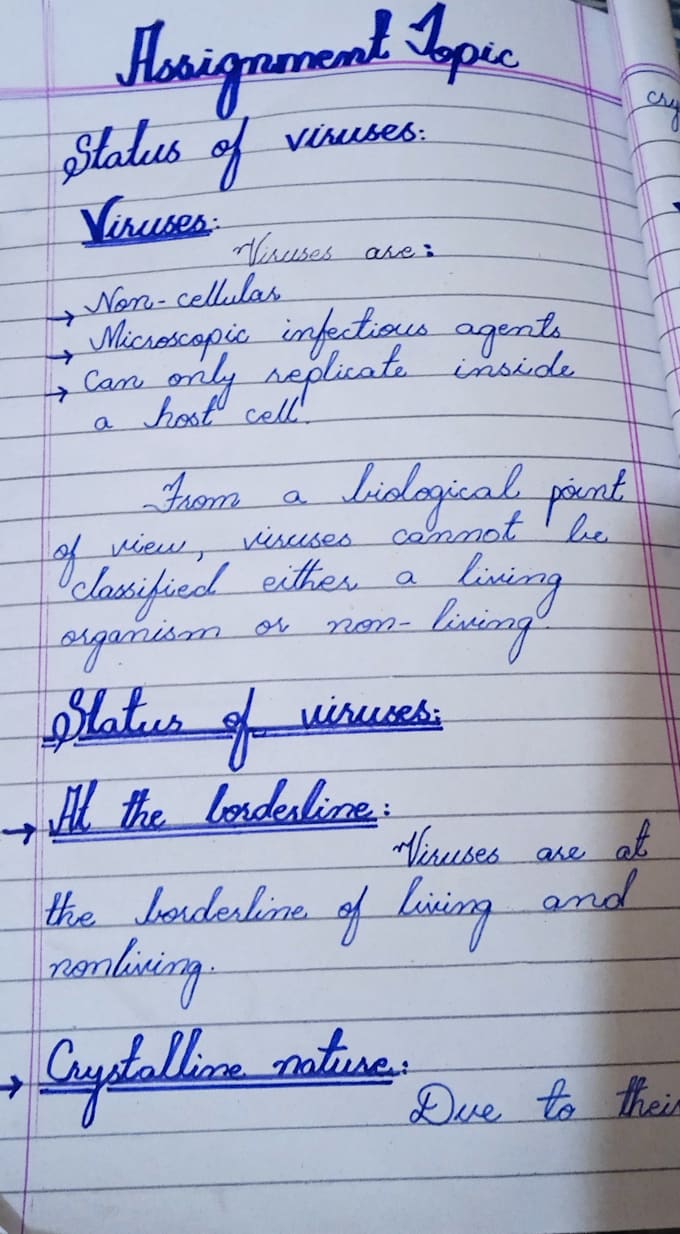 Assignment Topic
Status of viruses:
Viruses:
Viruses are:
→ Non-cellular
→ Microscopic infectious agents
→ Can only replicate inside
a host cell.
From a biological point
of view, viruses cannot be
classified either a living
organism or non-living.
Status of viruses:
→ At the borderline:
Viruses are at
the borderline of living and
nonliving.
→ Crystalline nature:
Due to their